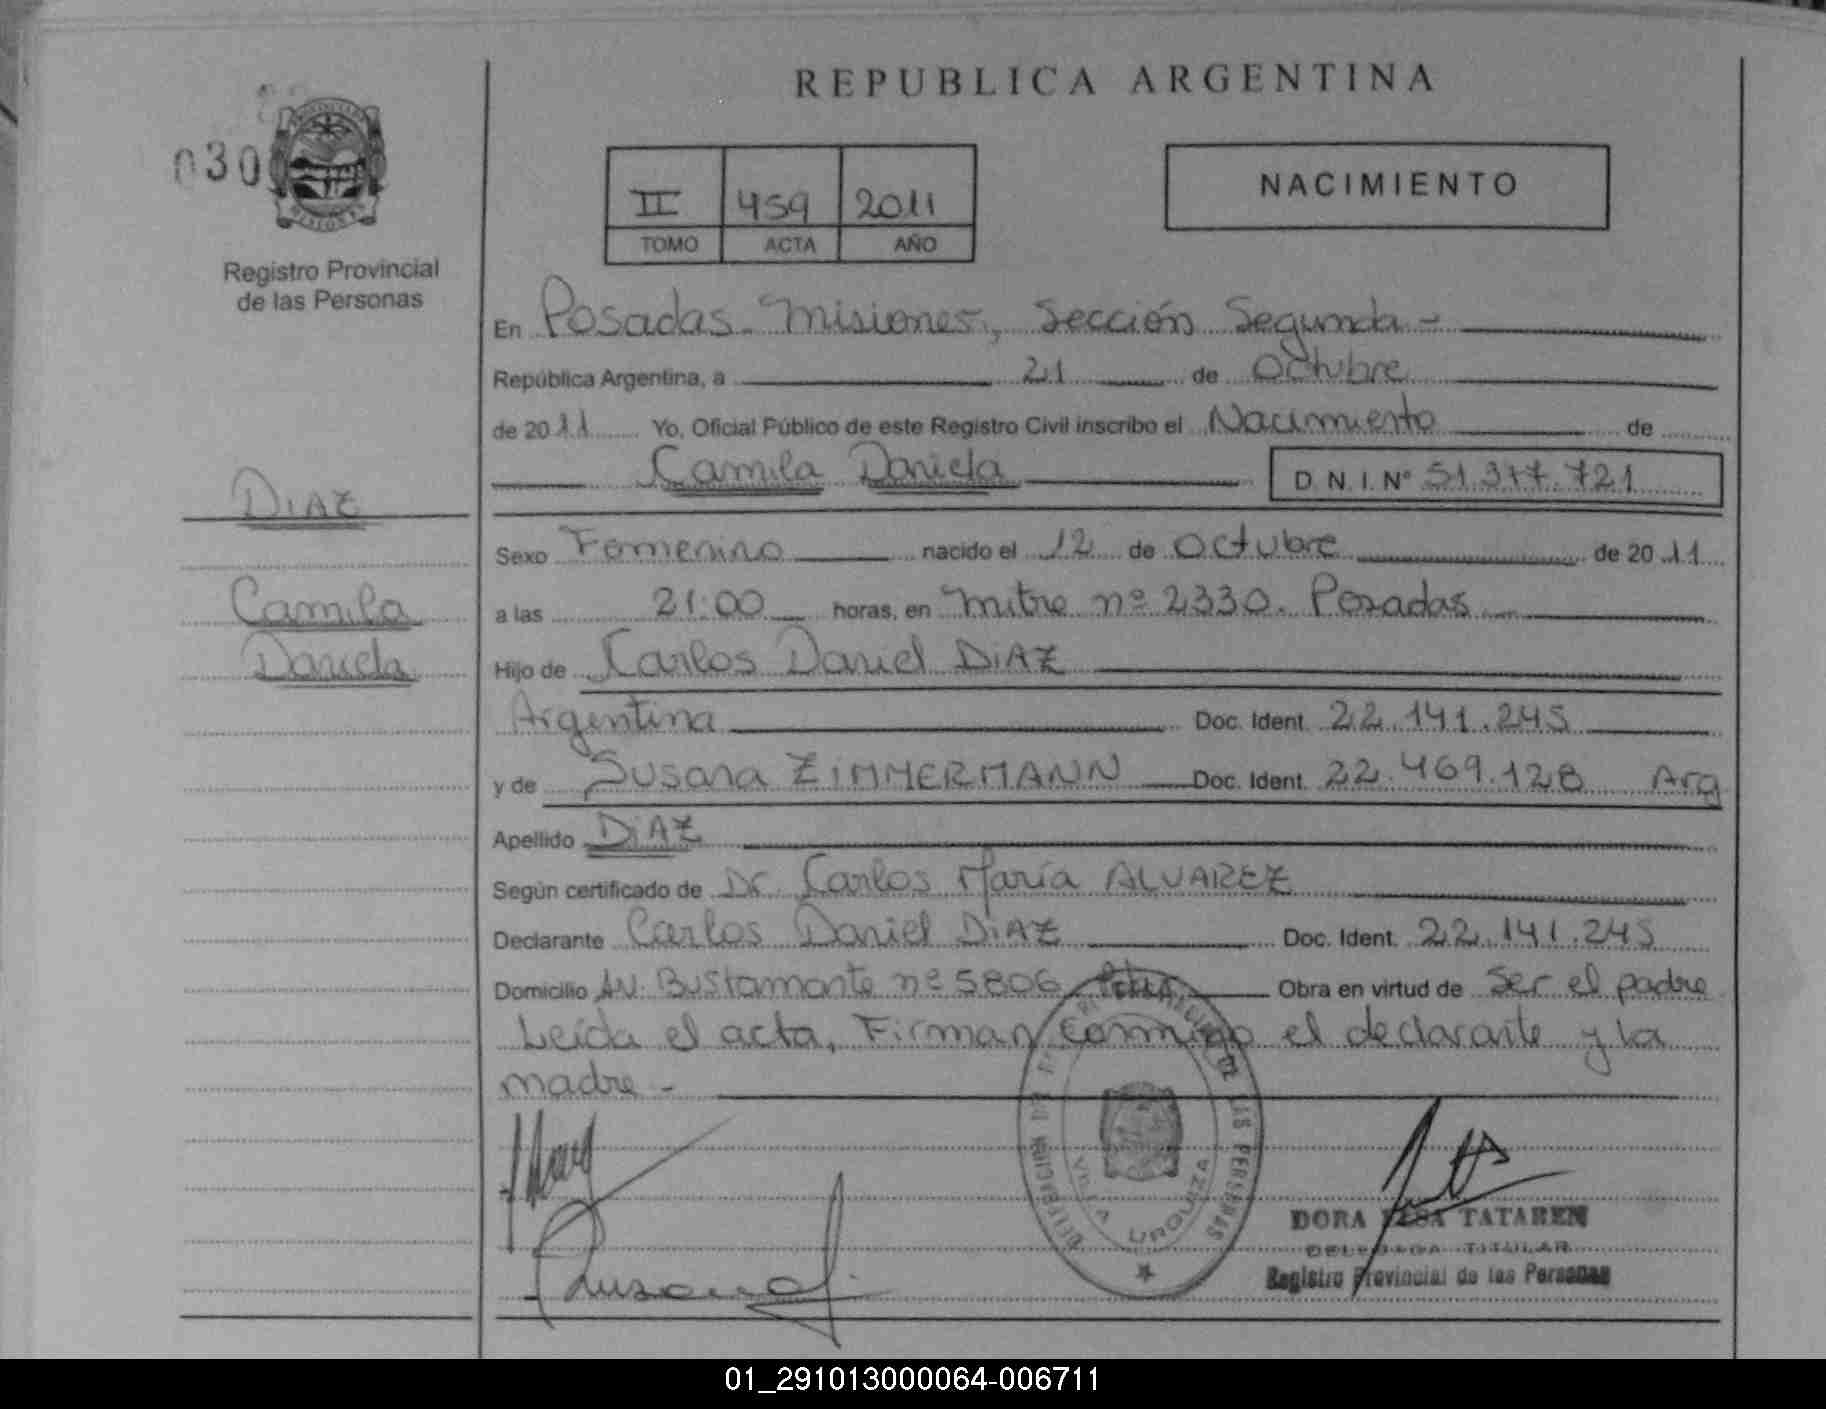 REPUBLICA ARGENTINA
030
PROVINCIA DE
MISIONES
Registro Provincial
de las Personas
II 459 2011
TOMO ACTA AÑO
NACIMIENTO
En Posadas. Misiones, Sección Segunda -
República Argentina, a 21 de Octubre
de 2011 Yo, Oficial Público de este Registro Civil inscribo el Nacimiento de
Camila Daniela D.N.I.Nº 51.377.721
DIAZ
Camila
Daniela
Sexo Femenino nacido el 12 de Octubre de 2011
a las 21:00 horas, en Mitre nº 2330. Posadas
Hijo de Carlos Daniel DIAZ
Argentina Doc. Ident. 22.141.245
y de Susana ZIMMERMANN Doc. Ident. 22.469.128 Arg
Apellido DIAZ
Según certificado de Dr. Carlos María ALVAREZ
Declarante Carlos Daniel DIAZ Doc. Ident. 22.141.245
Domicilio Av. Bustamante nº 5806 Obra en virtud de Ser el padre
Leída el acta, Firman conmigo el declarante y la
madre -
DE LAS PERSONAS
VILLA URQUIZA
DORA TATAREN
DELEGADA TITULAR
Registro Provincial de las Personas
01_291013000064-006711